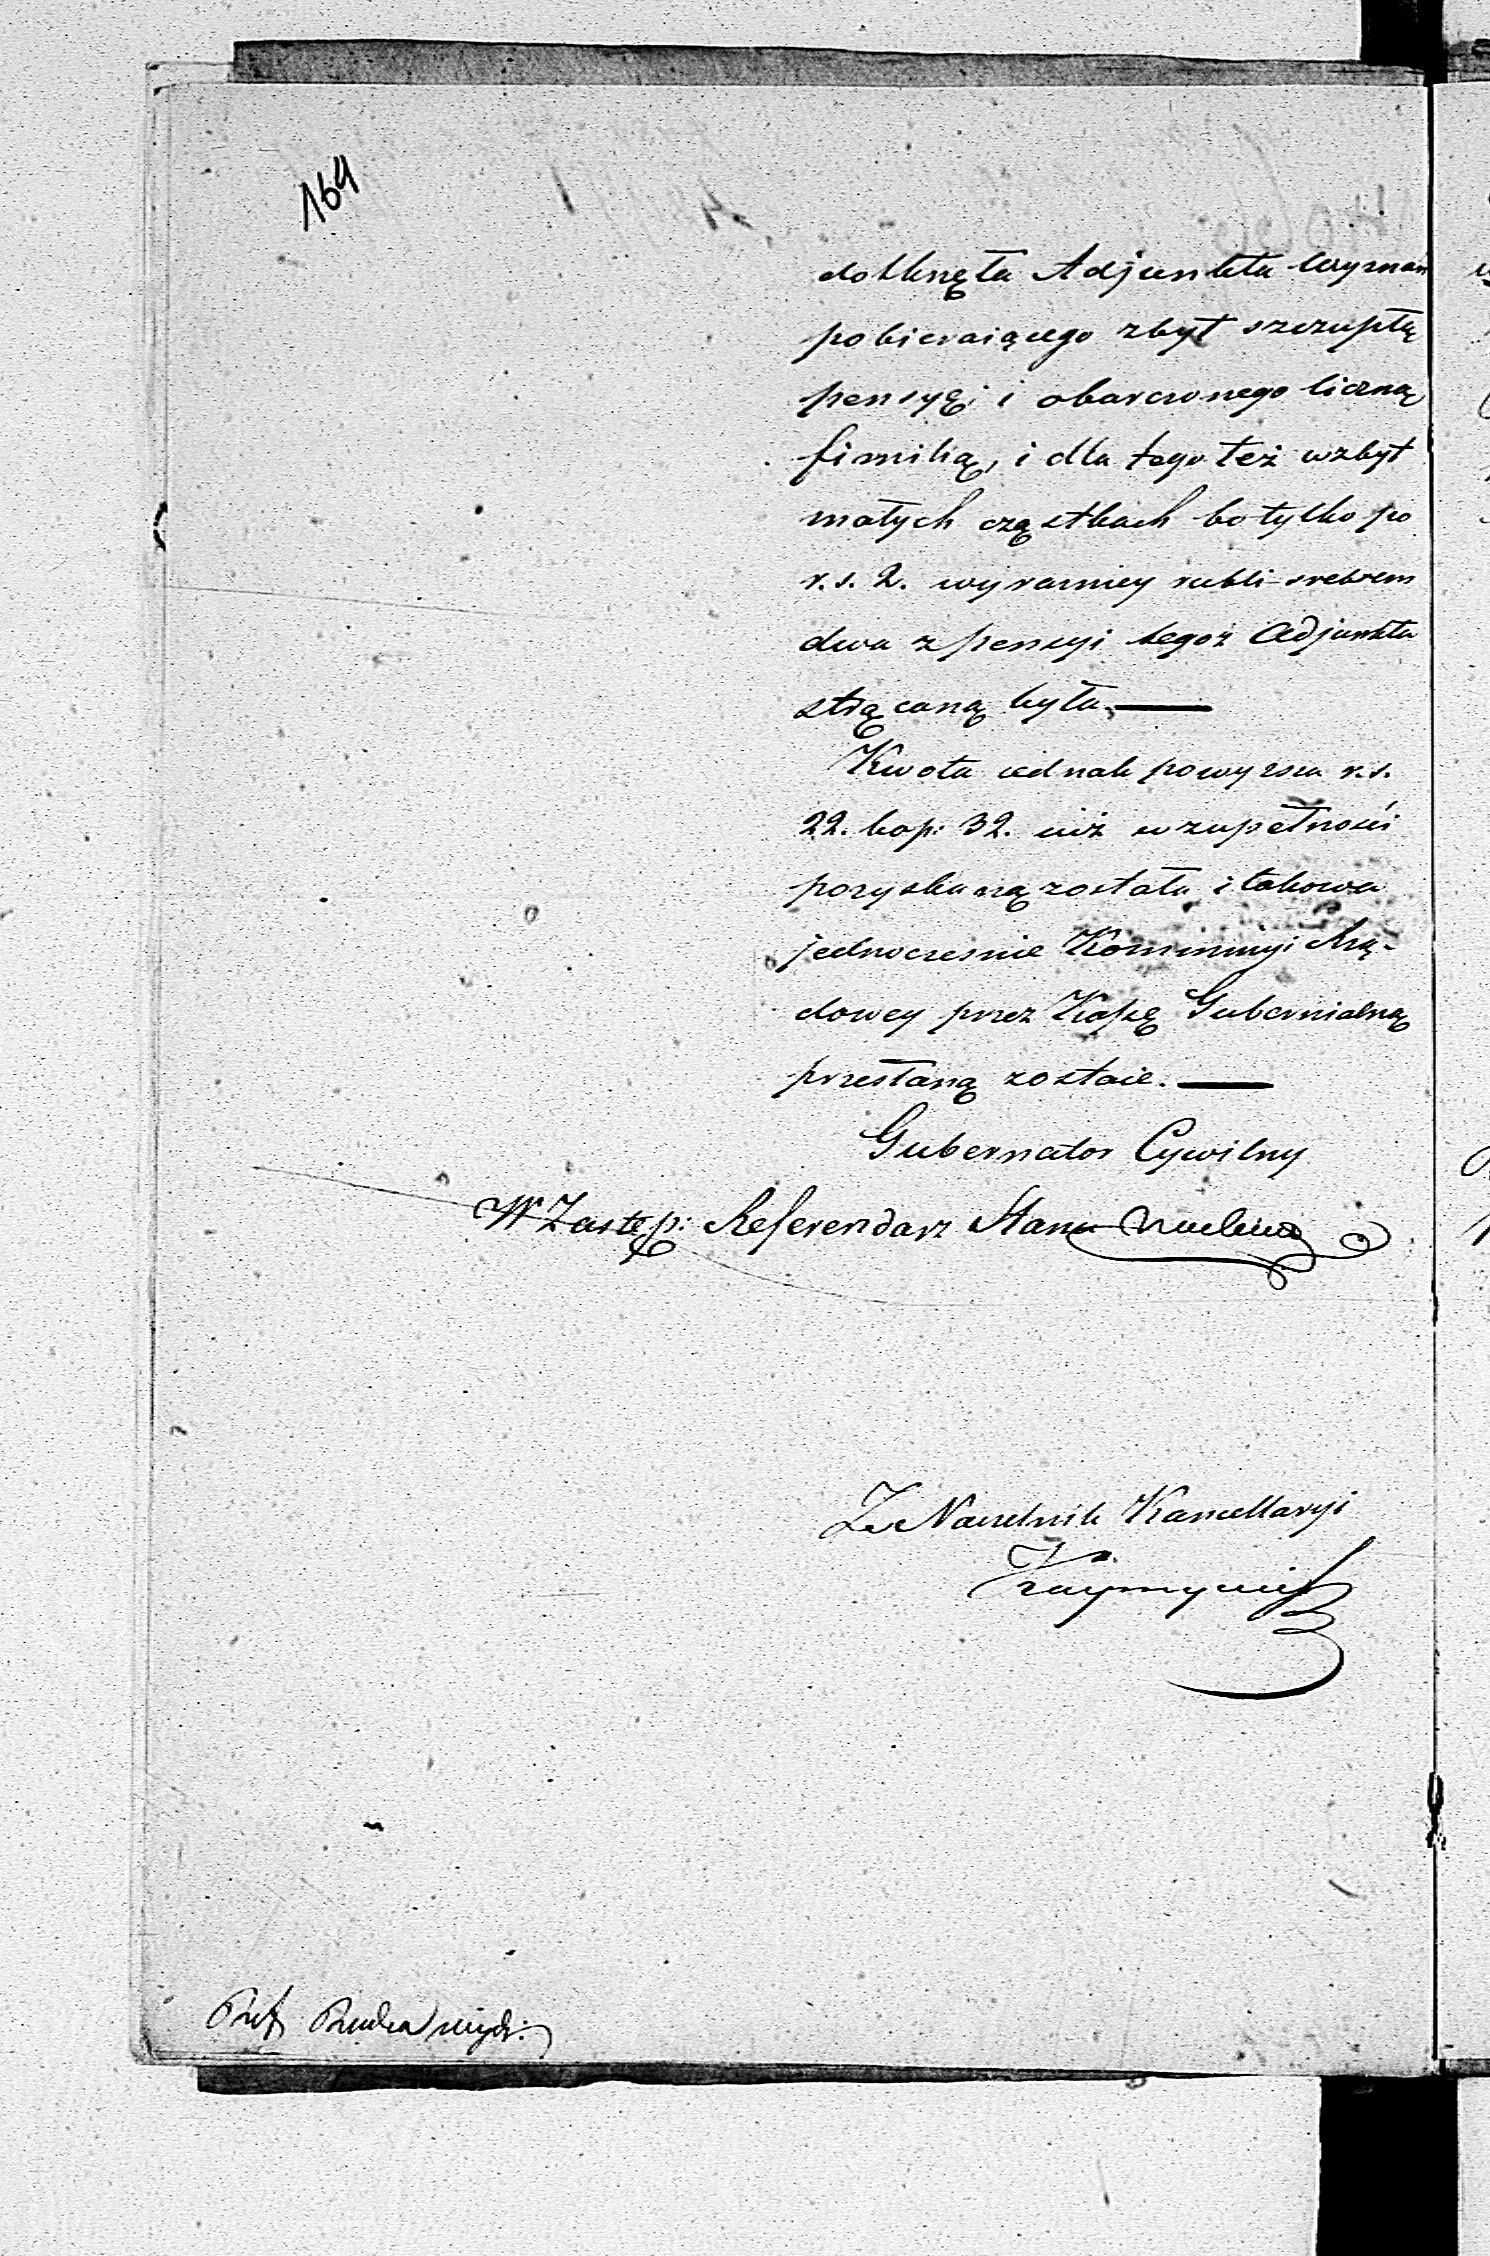 164
dotknęła Adjunkta Wyznań
pobieraiącego zbyt szczupłą
pensyę i obarczonego liczną
fimilią, i dla tego też w zbyt
małych cząstkach bo tylko po
r. s. 2. wyraźniey rubli srebrem
dwa z pensyi tegoż Adjunkta
strącaną była.
Kwota iednak powyższa r. s.
22. kop: 32. iuż w zupełności
pozyskaną została i takowa
jednocześnie Kommissyi Rzą-
dowey przez Kassę Gubernialną
przesłaną zostaie.
Gubernator Cywilny
W Zastęp: Referendarz Stanu
Za Naczelnik Kancellaryi